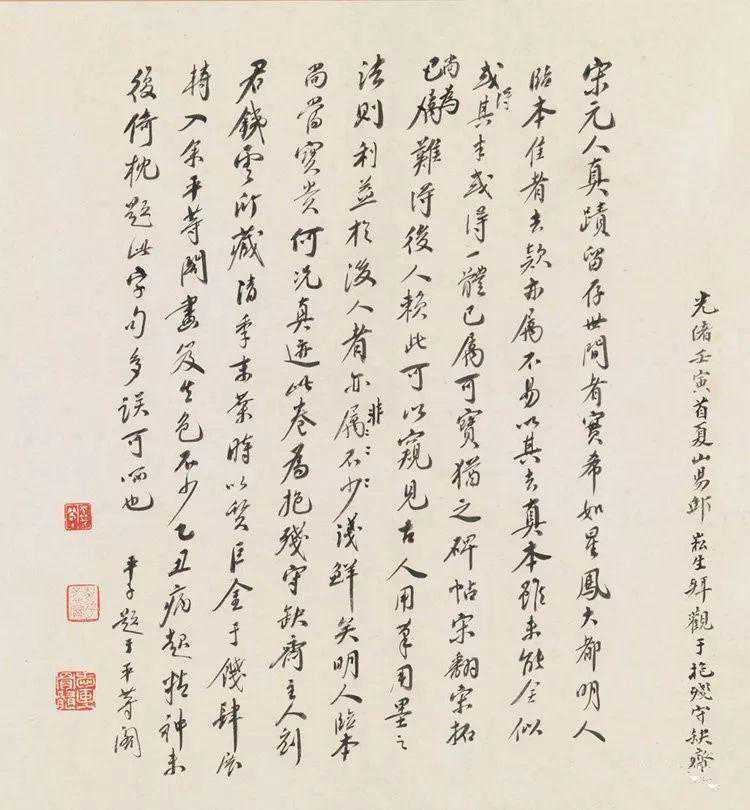 光緒壬寅首夏山昜鄒崧生拜觀于抱殘守缺齋
宋元人真蹟留存世間者寶希如星鳳大都明人
臨本佳者去款亦屬不易以其去真本雖未能全似
或得其半或得一體已屬可寶猶之碑帖宋翻宋拓
尚為已屬難得後人賴此可以窺見古人用筆用墨之
法則利益於後人者亦屬非不少淺鮮矣明人臨本
尚當寶貴何況真迹此卷為抱殘守缺齋主人劉
君鐵雲所藏清季末葉時以質巨金于餞肆展
轉入余平等閣畫笈生色不少乙丑病起精神未
復倚枕題此字句多誤可哂也
平子題于平等閣